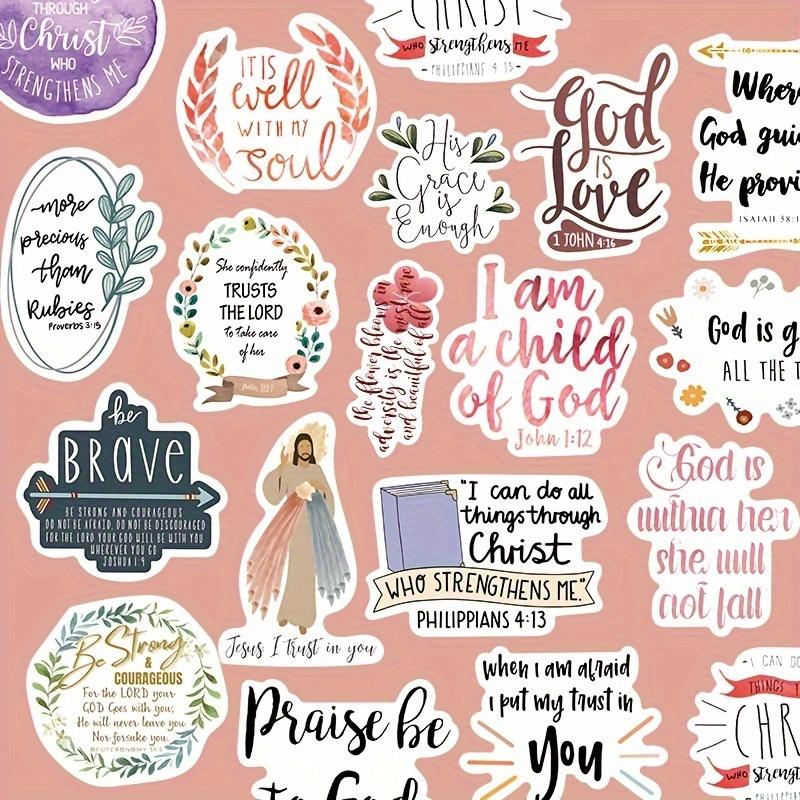 THROUGH
Christ
WHO
STRENGTHENS ME
CHRIST
WHO strengthens ME
- PHILIPPIANS 4:13 -
IT IS
well
WITH MY
Soul
His
Grace
is
Enough
God
IS
Love
1 JOHN 4:16
Where
God gui
He provi
ISAIAH 58:1
more
precious
than
Rubies
Proverbs 3:15
She confidently
TRUSTS
THE LORD
to take care
of her
the flower blooms in
adversity is the most rare
and beautiful of all
I am
a child
of God
John 1:12
God is g
ALL THE T
be
BRAVE
BE STRONG AND COURAGEOUS
DO NOT BE AFRAID, DO NOT BE DISCOURAGED
FOR THE LORD YOUR GOD WILL BE WITH YOU
WHEREVER YOU GO
JOSHUA 1:9
Jesus I trust in you
"I can do all
things through
Christ
WHO STRENGTHENS ME."
PHILIPPIANS 4:13
God is
within her
she will
not fall
Be Strong
&
COURAGEOUS
For the LORD your
GOD Goes with you;
He will never leave you
Nor forsake you.
DEUTERONOMY 31:6
Praise be
to God
when I am afraid
I put my trust in
You
-I CAN DO
THINGS T
CHR
WHO strengt
- PHILIPP